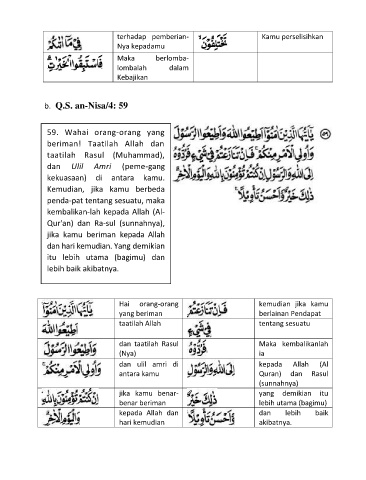 terhadap pemberian-
Nya kepadamu
فِيْ مَآ اٰتٰىكُمْ
Kamu perselisihkan
تَخْتَلِفُوْنَ
Maka berlomba-
lombalah dalam
Kebajikan
فَاسْتَبِقُوا الْخَيْرٰتِ
b. Q.S. an-Nisa/4: 59
59. Wahai orang-orang yang
beriman! Taatilah Allah dan
taatilah Rasul (Muhammad),
dan Ulil Amri (peme-gang
kekuasaan) di antara kamu.
Kemudian, jika kamu berbeda
penda-pat tentang sesuatu, maka
kembalikan-lah kepada Allah (Al-
Qur'an) dan Ra-sul (sunnahnya),
jika kamu beriman kepada Allah
dan hari kemudian. Yang demikian
itu lebih utama (bagimu) dan
lebih baik akibatnya.
يٰٓاَيُّهَا الَّذِيْنَ اٰمَنُوْٓا اَطِيْعُوا اللّٰهَ وَاَطِيْعُوا الرَّسُوْلَ
وَاُولِى الْاَمْرِ مِنْكُمْۚ فَاِنْ تَنَازَعْتُمْ فِيْ شَيْءٍ فَرُدُّوْهُ
اِلَى اللّٰهِ وَالرَّسُوْلِ اِنْ كُنْتُمْ تُؤْمِنُوْنَ بِاللّٰهِ وَالْيَوْمِ الْاٰخِرِۗ
ذٰلِكَ خَيْرٌ وَّاَحْسَنُ تَأْوِيْلًا
يٰٓاَيُّهَا الَّذِيْنَ اٰمَنُوْٓا
Hai orang-orang
yang beriman
فَاِنْ تَنَازَعْتُمْ
kemudian jika kamu
berlainan Pendapat
اَطِيْعُوا اللّٰهَ
taatilah Allah
فِيْ شَيْءٍ
tentang sesuatu
وَاَطِيْعُوا الرَّسُوْلَ
dan taatilah Rasul
(Nya)
فَرُدُّوْهُ
Maka kembalikanlah
ia
وَاُولِى الْاَمْرِ مِنْكُمْۚ
dan ulil amri di
antara kamu
اِلَى اللّٰهِ وَالرَّسُوْلِ
kepada Allah (Al
Quran) dan Rasul
(sunnahnya)
اِنْ كُنْتُمْ تُؤْمِنُوْنَ بِاللّٰهِ
jika kamu benar-
benar beriman
ذٰلِكَ خَيْرٌ
yang demikian itu
lebih utama (bagimu)
وَالْيَوْمِ الْاٰخِرِۗ
kepada Allah dan
hari kemudian
وَّاَحْسَنُ تَأْوِيْلًا
dan lebih baik
akibatnya.